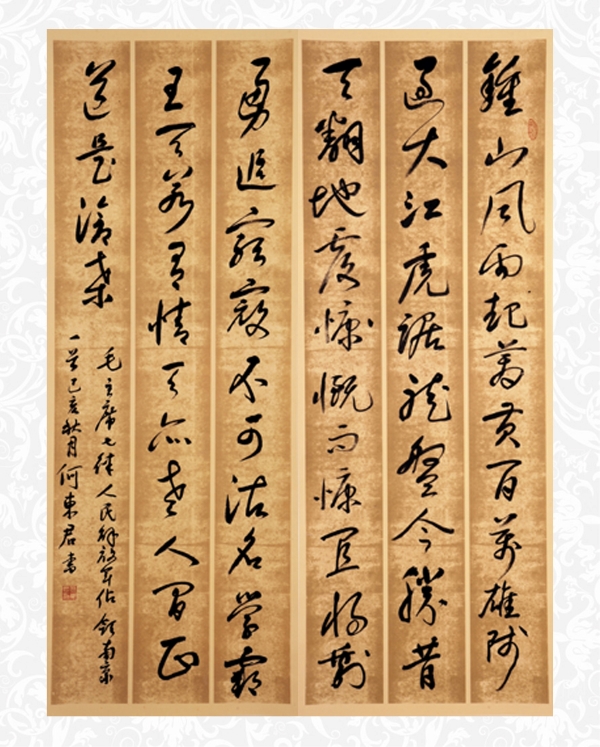 鍾山風雨起蒼黄百萬雄師
過大江虎踞龍盤今勝昔
天翻地覆慷慨而慷宜將剩
勇追窮寇不可沽名學霸
王天若有情天亦老人間正
道是滄桑
毛主席七律人民解放軍佔領南京
一首己亥秋月何東君書